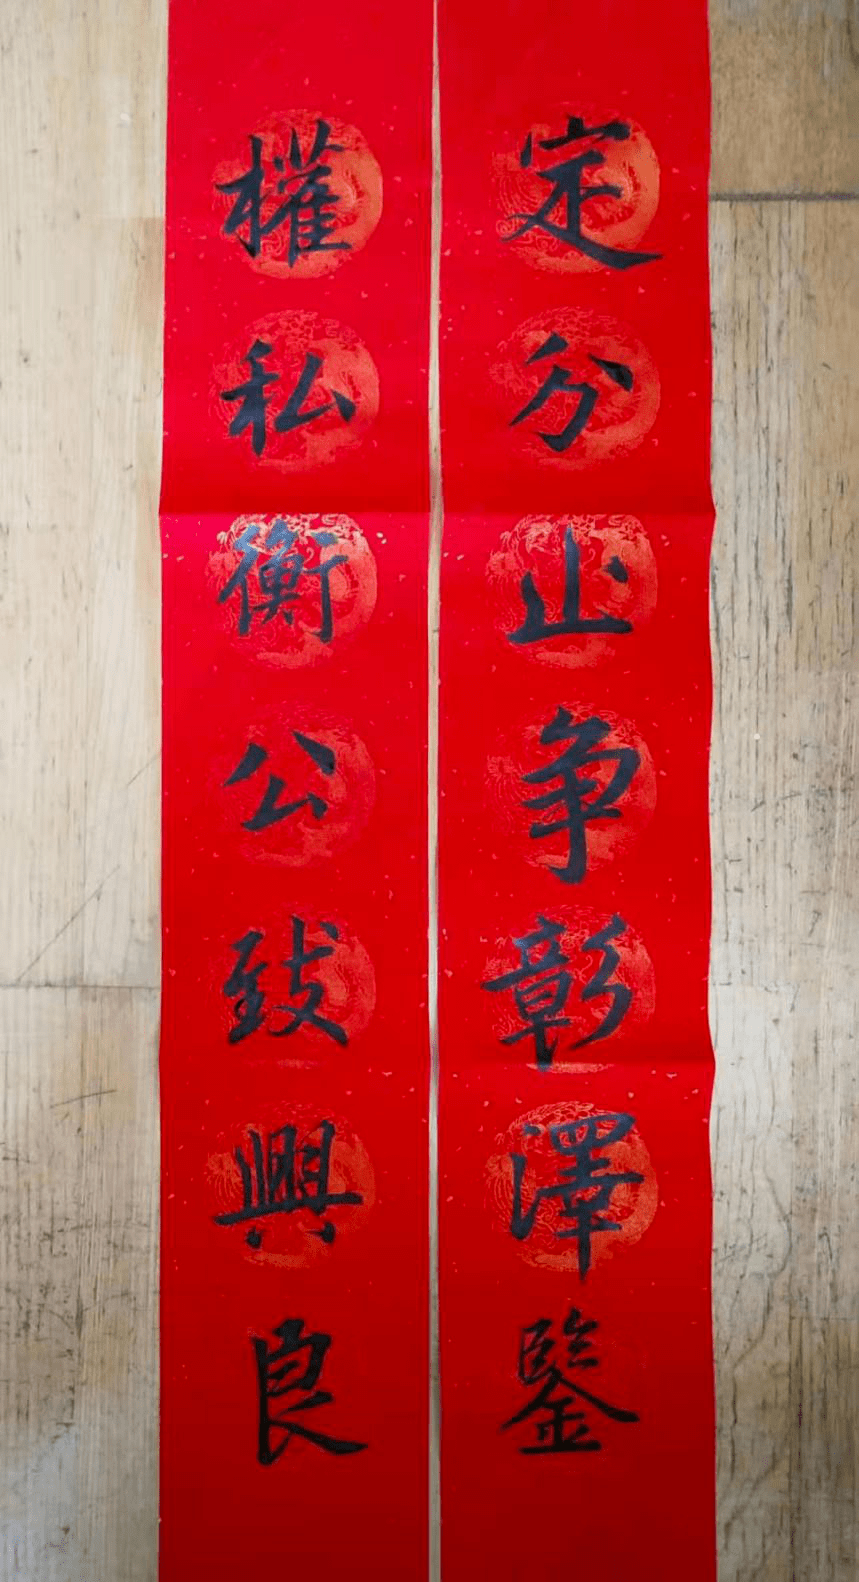 定分止争彰澤鑒
權私衡公致興良